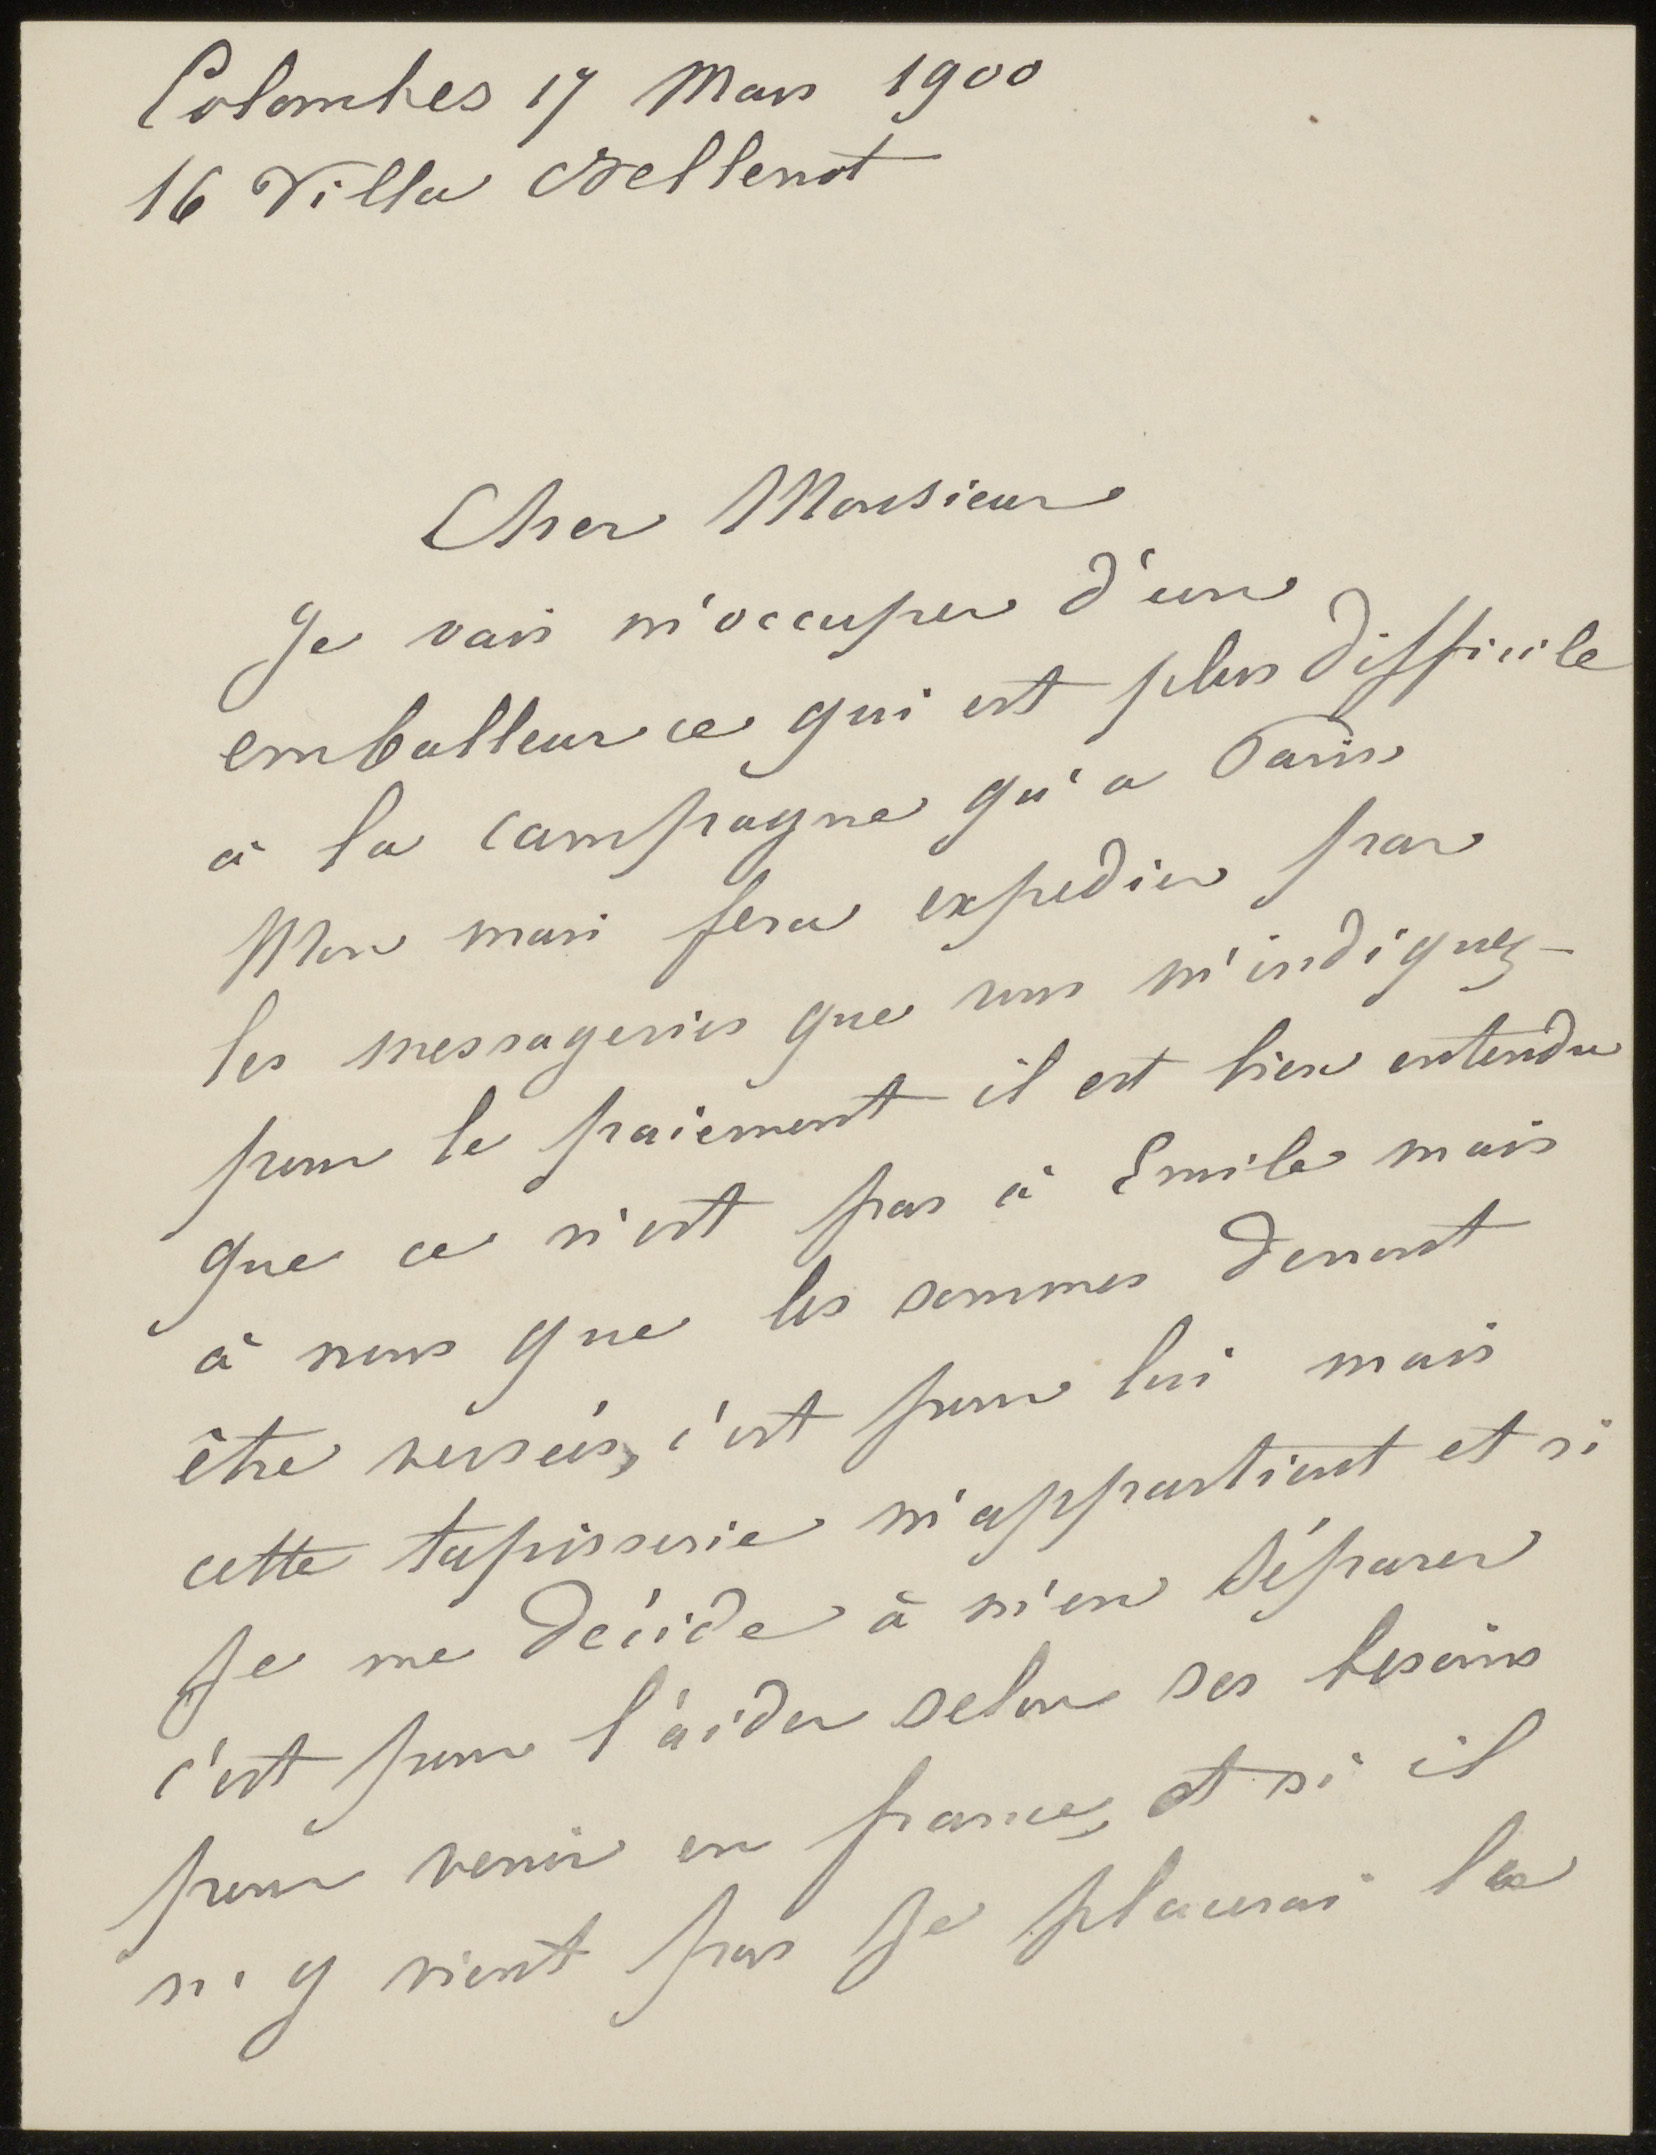 Colombes 17 Mars 1900
16 Villa Bellenot
Cher Monsieur
Je vais m'occuper d'un
emballeur ce qui est plus difficile
à la campagne qu'a Paris
Mon mari fera expedier par
les messageries que vous m'indiquez -
pour le paiement il est bien entendu
que ce n'est pas à Emile mais
à nous que les sommes devront
être versées, c'est pour lui mais
cette tapisserie m'appartient et si
Je me décide à m'en séparer
c'est pour l'aider selon ses besoins
pour venir en france, et si il
n'y vient pas Je placerai la